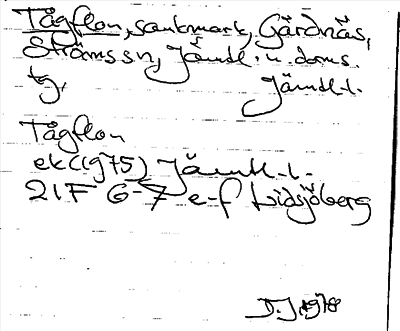 Tågflon, sankmark, Gärdnäs,
Ströms sn, Jämtl. n. doms.
tg, Jämtl.l.
Tågflon
ek (1975) Jämtl.l.
21F 6-7 e-f Lidsjöberg
D.J. 1978